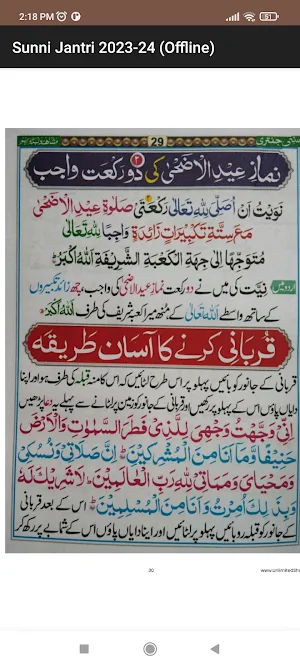 2:18 PM
Sunni Jantri 2023-24 (Offline)
29
نمازِ عیدالاضحیٰ کی دو رکعت واجب
۲
نَوَيْتُ اَنْ اُصَلِّیَ لِلّٰهِ تَعَالٰی رَكْعَتَیْ صَلٰوةِ عِيْدِ الْاَضْحٰی
مَعَ سِتَّةِ تَكْبِيْرَاتٍ زَائِدَةٍ وَاجِبًا لِلّٰهِ تَعَالٰی
مُتَوَجِّهًا اِلٰی جِهَةِ الْكَعْبَةِ الشَّرِيْفَةِ اَللّٰهُ اَكْبَرُ
اردو میں نیت کی میں نے دو رکعت نماز عیدالاضحیٰ کی واجب، چھ زائد تکبیروں
کے ساتھ واسطے اللہ تعالیٰ کے منھ میرا کعبہ شریف کی طرف اللہ اکبر
قربانی کرنے کا آسان طریقہ
قربانی کے جانور کو بائیں پہلو پر اس طرح لٹائیں کہ اس کا منہ قبلہ کی طرف ہو اور اپنا
دایاں پاؤں اس کے پہلو پر رکھیں اور قربانی کے جانور کو زمین پر لٹانے سے پہلے یہ دعا پڑھیں
اِنِّیْ وَجَّهْتُ وَجْهِیَ لِلَّذِیْ فَطَرَ السَّمٰوٰتِ وَالْاَرْضَ
حَنِيْفًا وَّمَا اَنَا مِنَ الْمُشْرِكِيْنَ اِنَّ صَلَاتِیْ وَنُسُكِیْ
وَمَحْيَایَ وَمَمَاتِیْ لِلّٰهِ رَبِّ الْعَالَمِيْنَ لَا شَرِيْكَ لَهٗ
وَبِذٰلِكَ اُمِرْتُ وَاَنَا مِنَ الْمُسْلِمِيْنَ اس کے بعد قربانی
کے جانور کو قبلہ رو بائیں پہلو پر لٹائیں اور اپنا دایاں پاؤں اس کے شانے پر رکھ کر
30